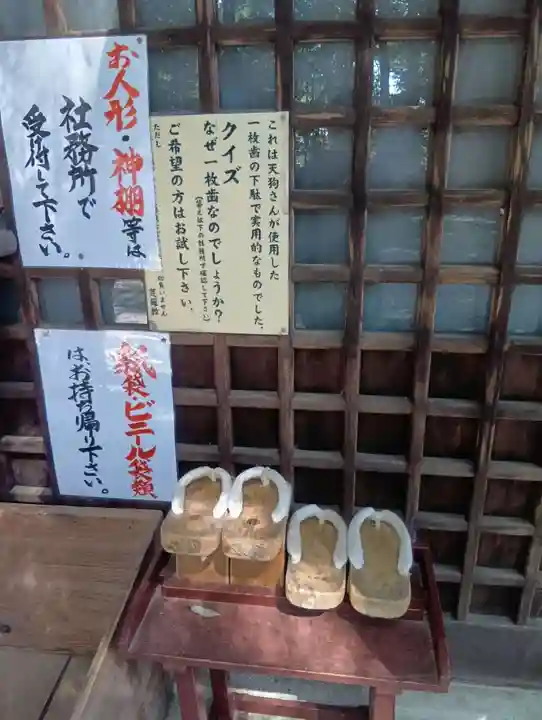 お人形・神棚等は
社務所で
受付して下さい。
これは天狗さんが使用した
一枚歯の下駄で実用的なものでした。
クイズ
なぜ一枚歯なのでしょうか?
(答え以下の社務所で確認して下さい)
ご希望の方はお試し下さい。
ただし
いません
紙袋・ビニール袋類
はお持ち帰り下さい。